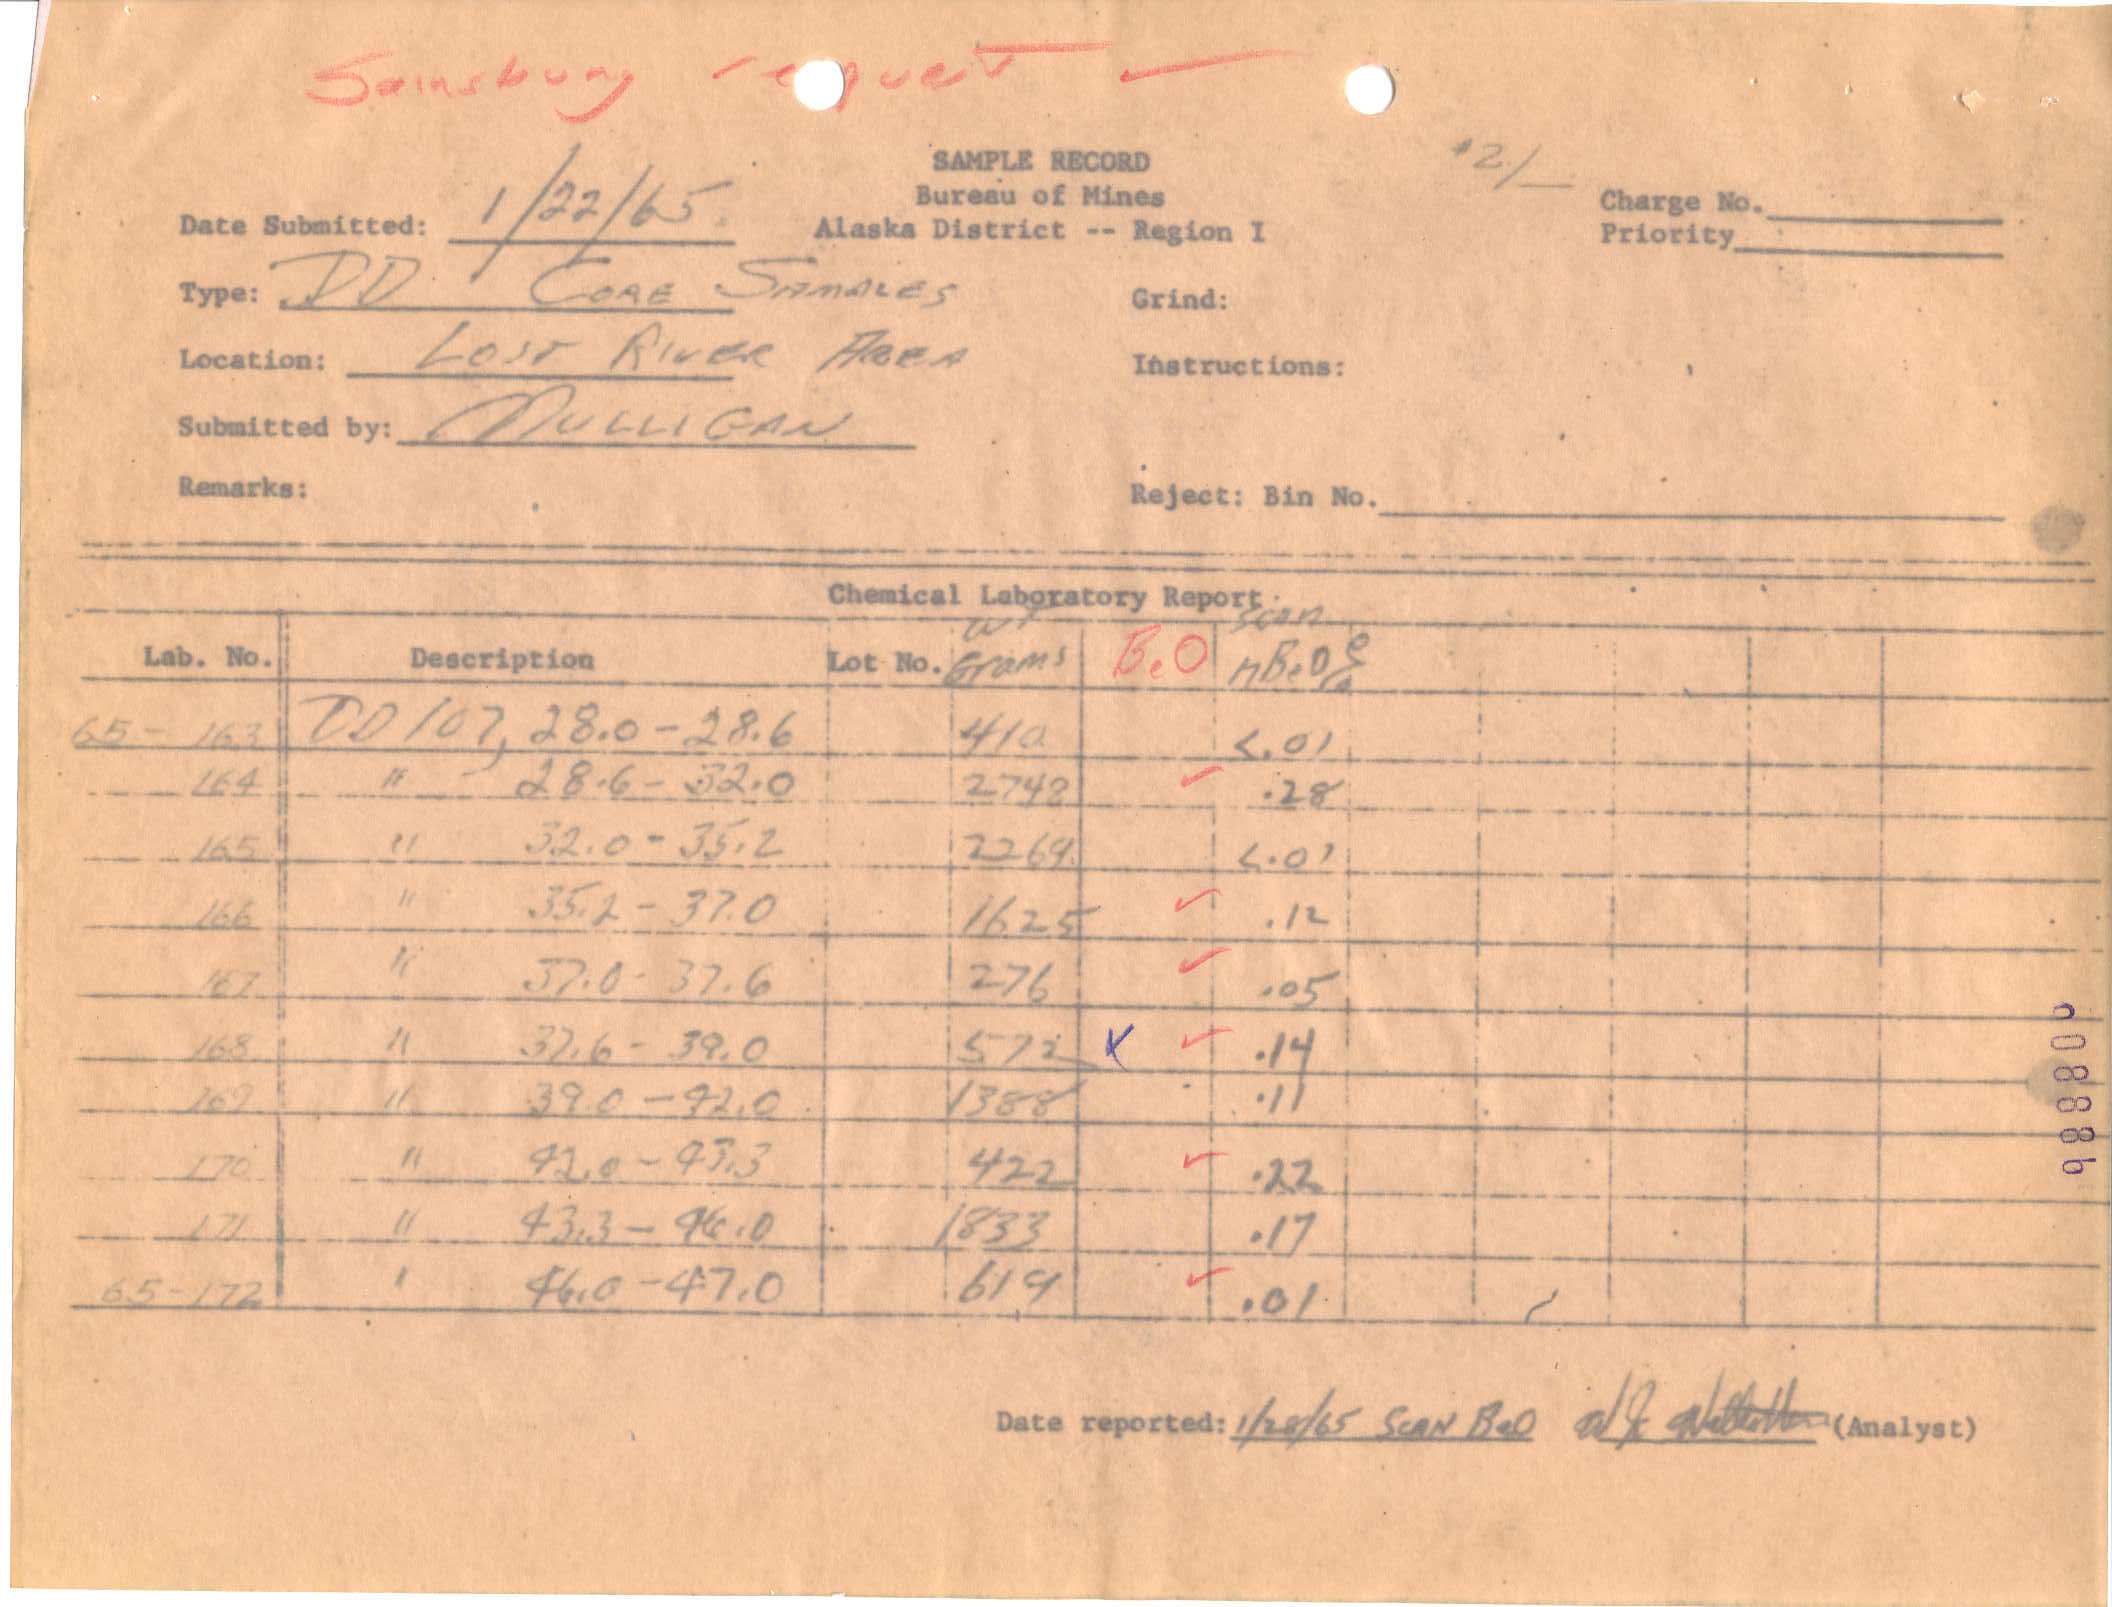 Sainsbury request
SAMPLE RECORD
Bureau of Mines
Alaska District -- Region I
Charge No.
Priority
Date Submitted: 1/22/65
Type: DD CORE SAMPLES
Grind:
Location: LOST RIVER AREA
Instructions:
Submitted by: MULLIGAN
Remarks:
Reject: Bin No.
Chemical Laboratory Report
Lab. No. Description Lot No. wt Grams BeO scan BeO %
65-163 DD 107, 28.0-28.6 410 <.01
164 " 28.6-32.0 2748 ✓ .28
165 " 32.0-35.2 2269 <.01
166 " 35.2-37.0 1625 ✓ .12
167 " 37.0-37.6 276 ✓ .05
168 " 37.6-39.0 572 ✓ .14
169 " 39.0-42.0 1388 .11
170 " 42.0-43.3 422 ✓ .22
171 " 43.3-46.0 1833 .17
65-172 " 46.0-47.0 619 ✓ .01
Date reported: 1/28/65 SCAN BeO (Analyst)